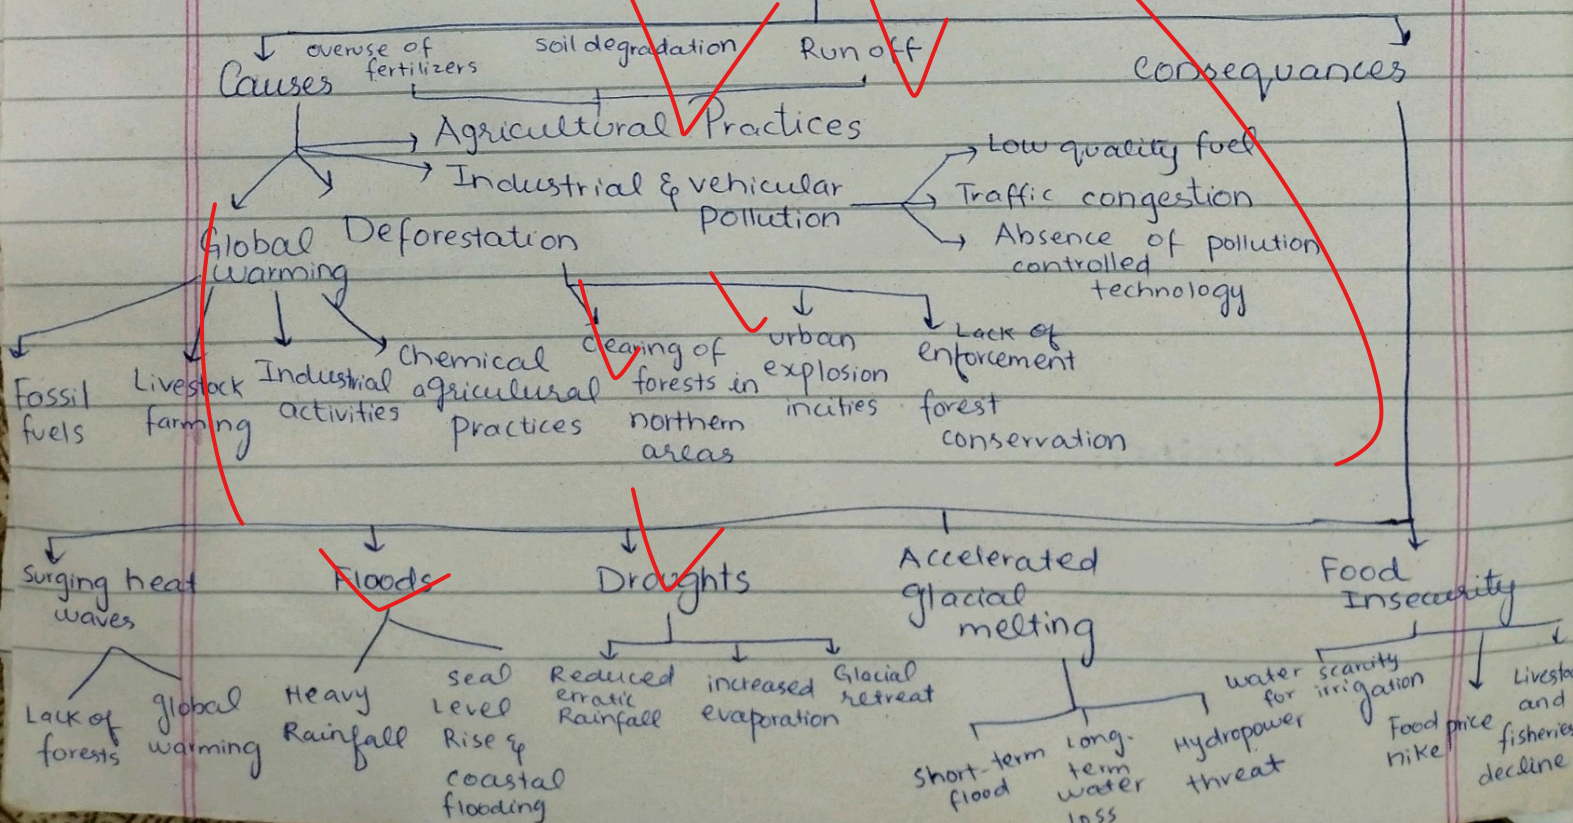 overuse of
fertilizers
soil degradation
Run off
Causes
Consequances
Agricultural Practices
Industrial & vehicular
pollution
Low quality fuel
Traffic congestion
Absence of pollution
controlled
technology
Global
warming
Deforestation
Fossil
fuels
Livestock
farming
Industrial
activities
Chemical
agriculural
practices
clearing of
forests in
northern
areas
urban
explosion
incities
Lack of
enforcement
forest
conservation
Surging heat
waves
Floods
Droughts
Accelerated
glacial
melting
Food
Insecurity
Lack of
forests
global
warming
Heavy
Rainfall
seal
Level
Rise &
coastal
flooding
Reduced
erratic
Rainfall
increased
evaporation
Glacial
retreat
Short-term
flood
Long-
term
water
loss
Hydropower
threat
water scarcity
for irrigation
Food price
hike
and
fisheries
decline